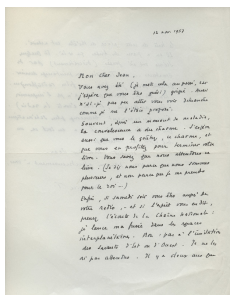 12 nov. 1957
Mon cher Jean,
Vous avez été (je mets cela au passé, car
j'espère que vous êtes guéri) grippé. Aussi
n'ai-je pas pu aller vous voir dimanche
comme je me l'étais proposé.
Souvent, après un moment de maladie,
la convalescence a du charme. J'espère
aussi que vous le goûtez, ce charme, et
que vous en profitez pour terminer votre
Vous savez que nous attendons ce
(Je dis nous parce que nous sommes
plusieurs, et non parce que je me prends
pour le roi –)
Enfin, si samedi soir vous êtes auprès de
votre radio, – et si d'après vous en dit,
prenez l'écoute de la Chaîne Nationale :
je lance ma fusée dans les espaces
interplanétaires. Non pas à l'imitation
des savants d'Est ou d'Ouest. Je ne les
ai pas attendus. Il y a deux ans que